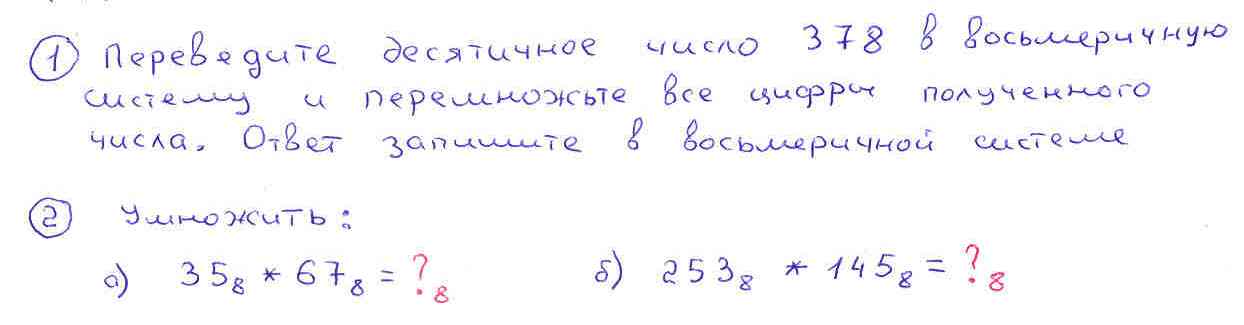 ① Переведите десятичное число 378 в восьмеричную
систему и перемножьте все цифры полученного
числа. Ответ запишите в восьмеричной системе
② Умножить:
а) 35₈ * 67₈ = ?₈ б) 253₈ * 145₈ = ?₈